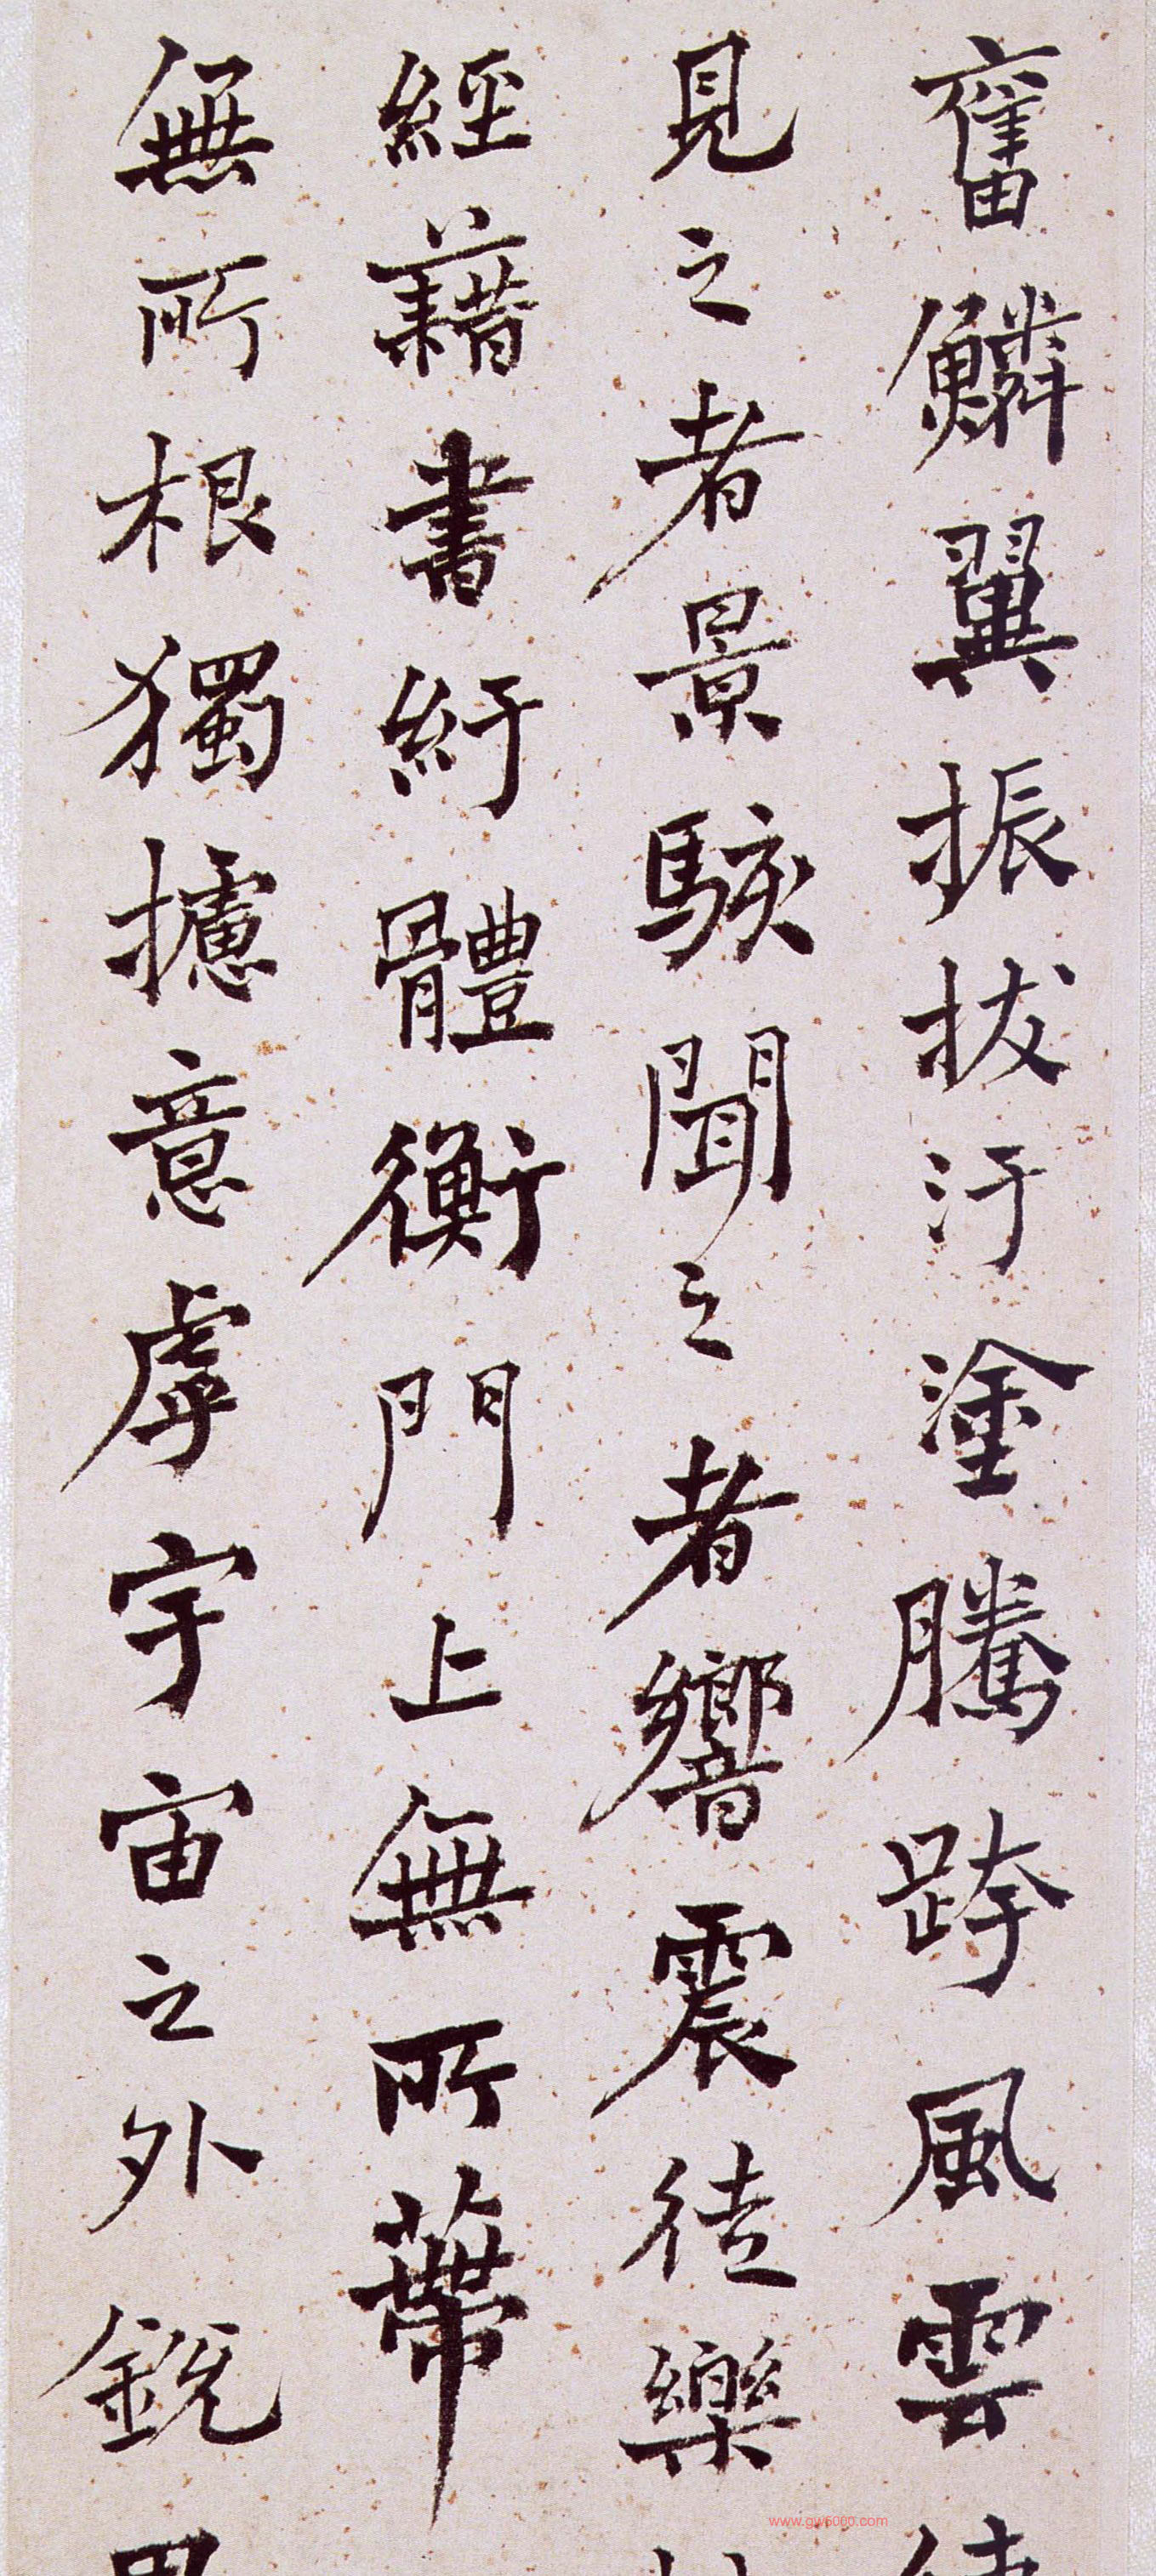 奮鱗翼振拔汙塗騰跨風雲
見之者景駭聞之者響震徒樂
經藉書紆體衡門上無所蔕
無所根獨攄意虖宇宙之外銳
www.gw5000.com